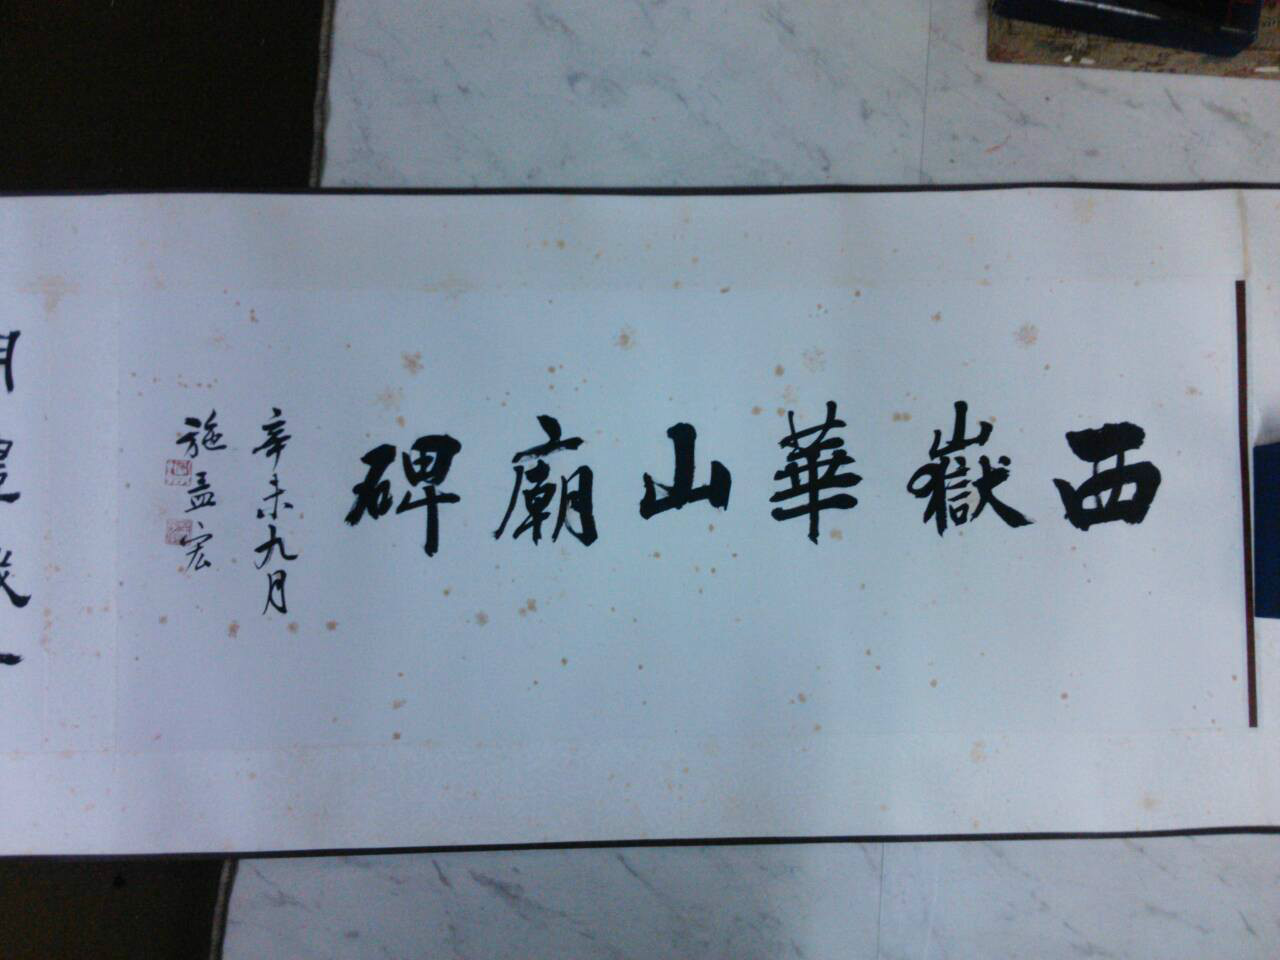 西嶽華山廟碑
辛未九月
施孟宏